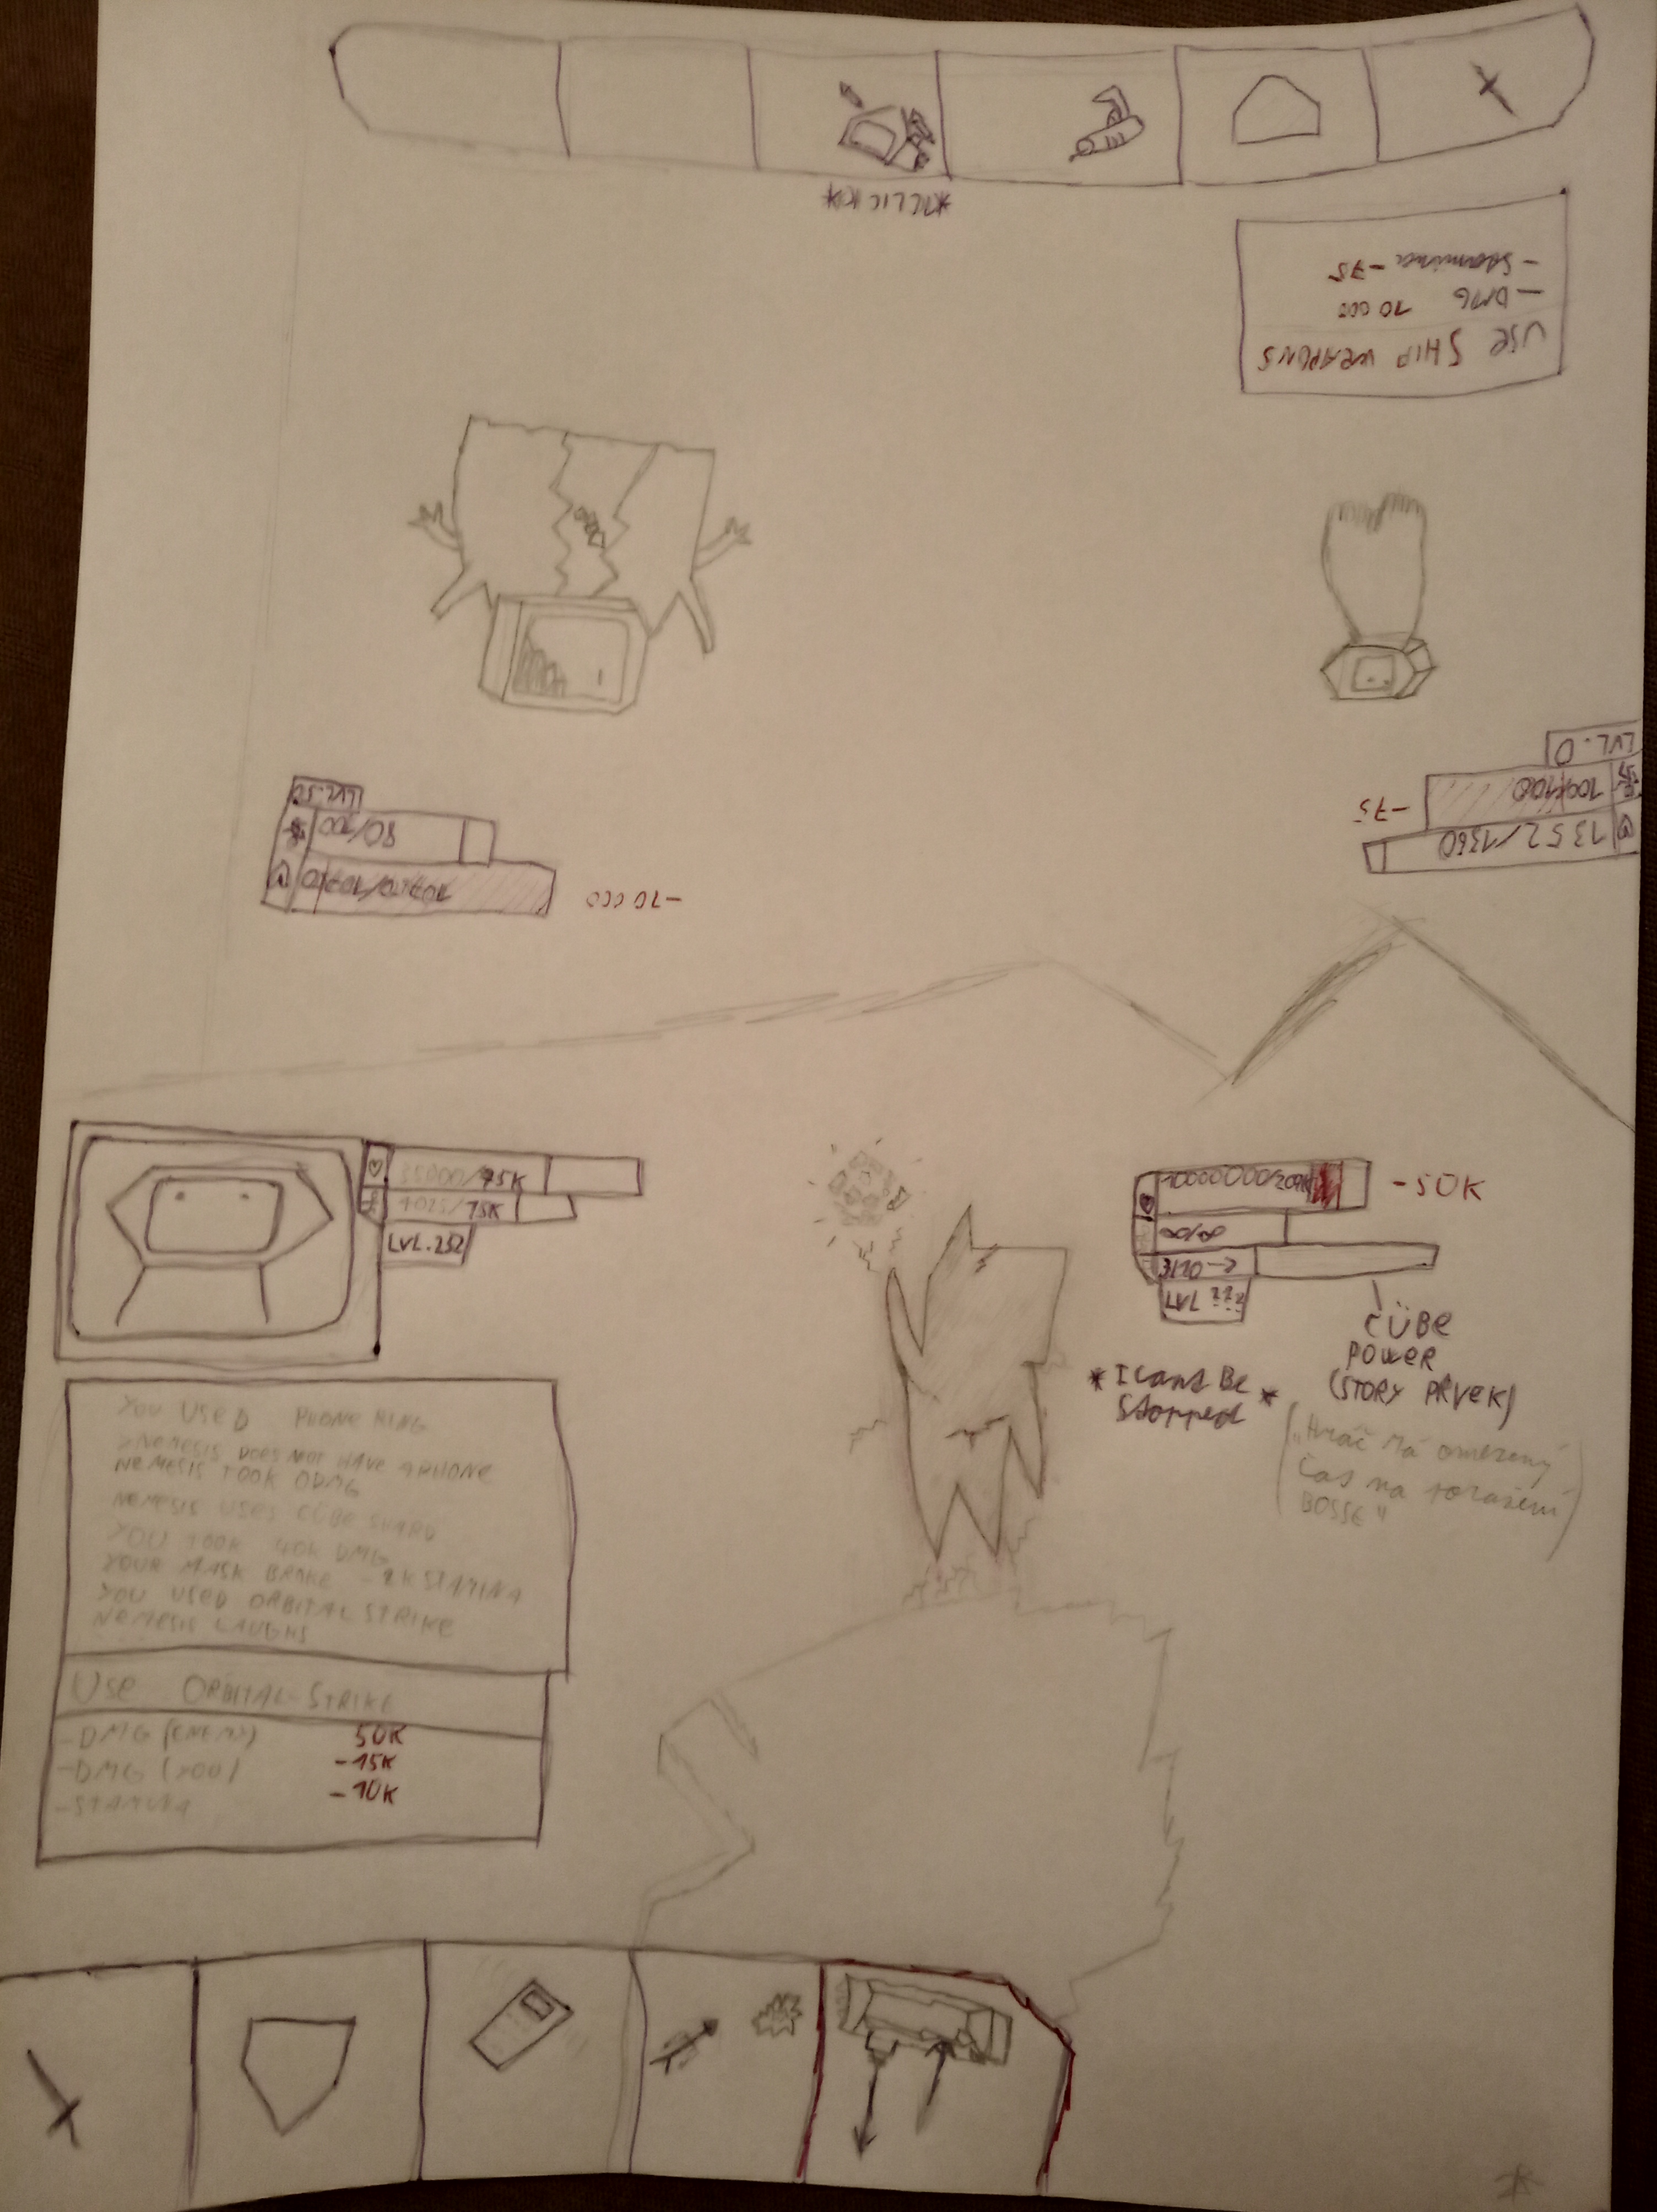 *CLICK*
USE SHIP WEAPONS
- DMG 10 000
- Stamina -75
LVL.0
100/100
-75
1352/1360
LVL.50
80/100
-10 000
♡ 35000/75K
4025/75K
LVL.252
-50K
∞/∞
3/10 →
LVL ???
CÜBE
POWER
(STORY PRVEK)
("Hráč má omezený
čas na poražení
BOSSE")
* I Cant Be *
Stopped
YOU USED PHONE RING
>NEMESIS DOES NOT HAVE A PHONE
NEMESIS TOOK 0DMG
NEMESIS USES CÜBE SHARD
YOU TOOK 40K DMG
YOUR MASK BROKE -2K STAMINA
YOU USED ORBITAL STRIKE
NEMESIS LAUGHS
USE ORBITAL STRIKE
-DMG (ENEMY) 50K
-DMG (YOU) -15K
-STAMINA -10K